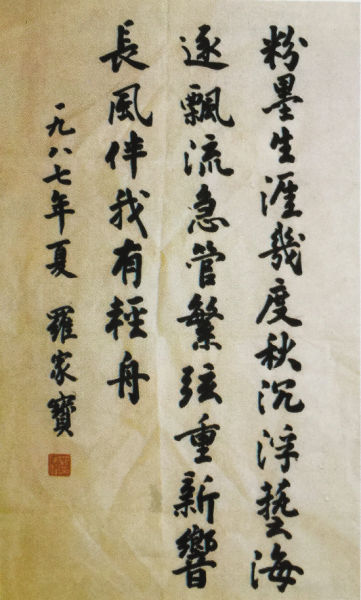 粉墨生涯幾度秋沉浮藝海
逐飄流急管繁弦重新響
長風伴我有輕舟
一九八七年夏 羅家寶